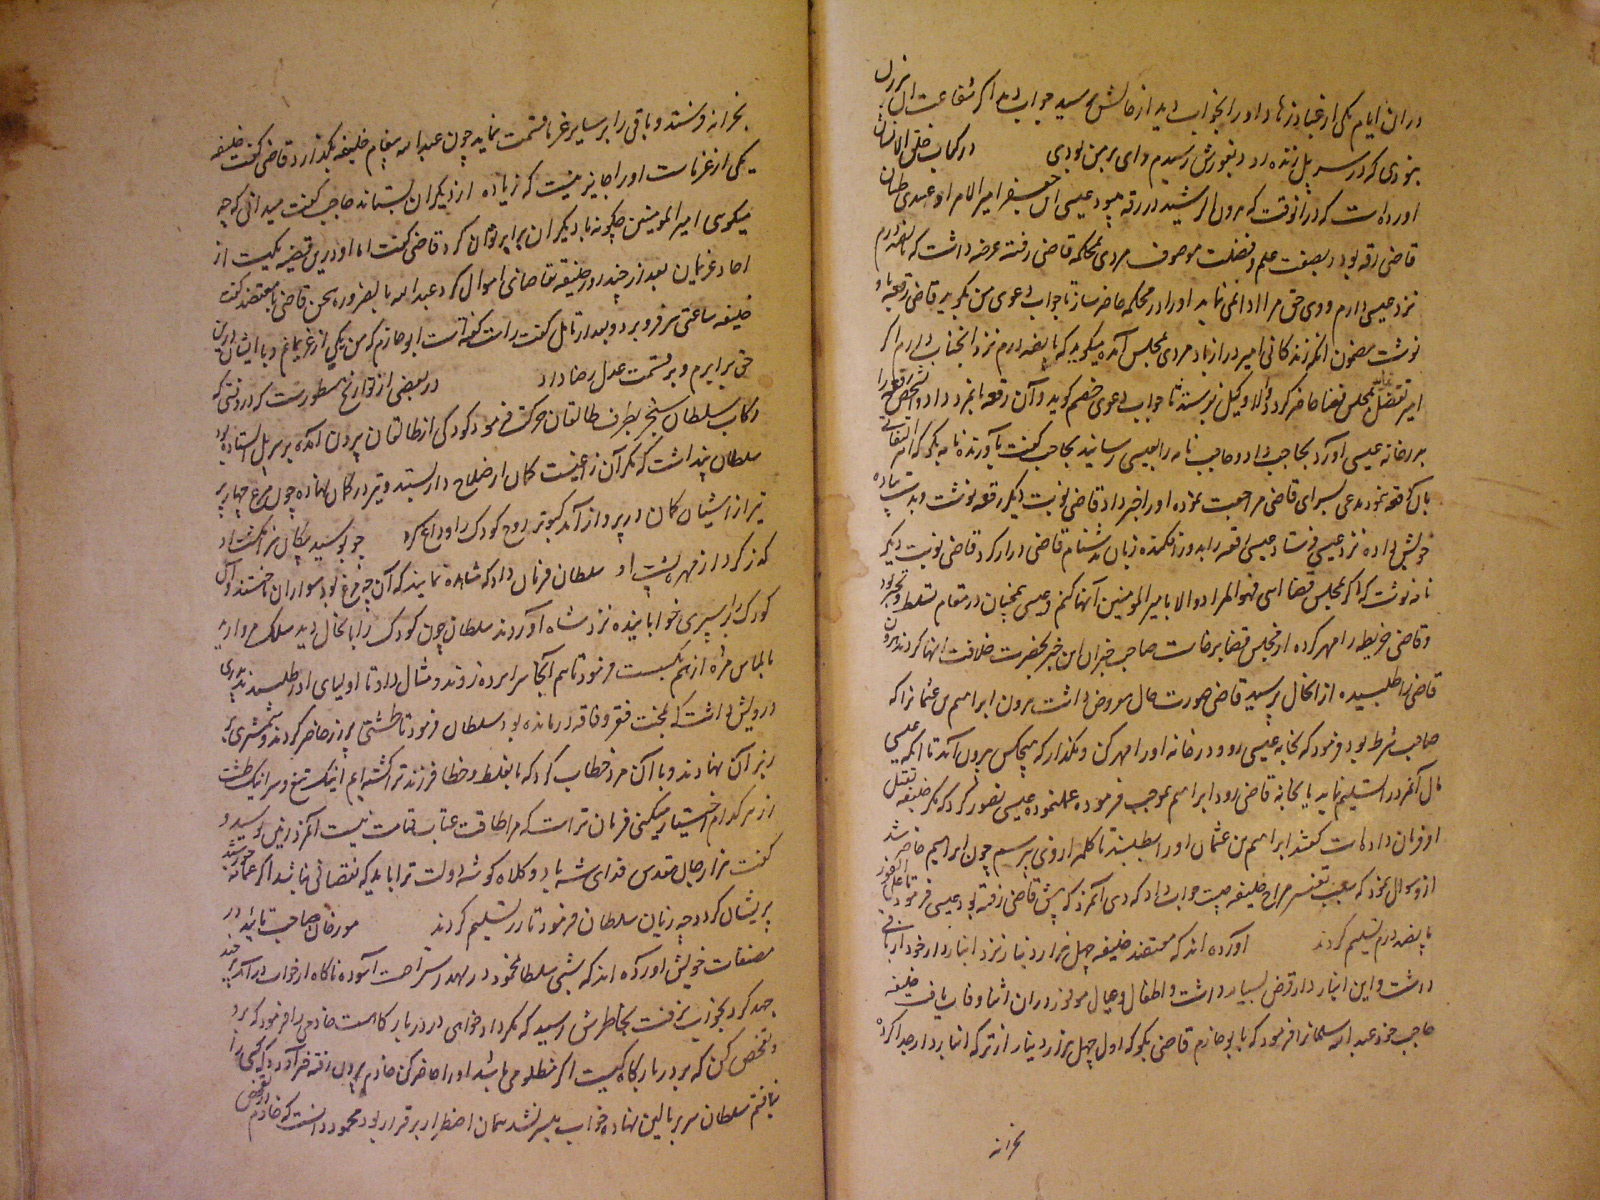 در ان ایام یکی از عباد زهاد او را بخواب دید از حالش پرسید جواب دید اگر شفاعت ان پیرزن
بنودی که در سر پل زنده رود بغورش رسیدم وای بر من بودی در کتاب خلق الانسان
اورده است که در انوقت که هرون الرشید در رقه میبود عیسی ابن جعفر امیر الامرا و عبدی ظبیان
قاضی رقه بود و بصفت علم و فضلت موصوف مردی بمحکمه قاضی رفته عرضه داشت که پانصد درم
نزد عیسی دارم و وی حق مرا ادا نمی نماید او را در محکمه حاضر ساز تا جواب دعوی من بگوید قاضی رقعه باو
نوشت مضمون انکه زندکانی امیر دراز باد مردی بمجلس آمده میکوید که پانصد درم نزد انجناب دارم اکر
امیر تفضل بمجلس قضا حاضر کردد والا وکیل بفرستد تا جواب دعوی خصم کوید و آن رقعه بانمرد داد و آن شخص رقعه را
بدر خانه عیسی آورد بحاجب داد و حاجب نامه را بعیسی رسانید بحاجب کفت باورنده نامه بکو که
مدعی بسرای قاضی مراجعت نموده او را خبر داد قاضی نوبت دیکر رقعه نوشت و بدست پیاده
خویش داده نزد عیسی فرستاد عیسی رقعه را بدور افکنده زبان بدشنام قاضی دراز کرد قاضی نوبت دیکر
نامه نوشت که اکر بمجلس قضا ایی فهو المراد والا بامیر المومنین آنها کنم و عیسی همچنان در مقام تسلط و تجبر بود
و قاضی خریطه را مهر کرده از مجلس قضا برخاست صاحب خبران این خبر بحضرت خلافت انها کردند هرون
قاضی را طلبیده از انحال پرسید قاضی صورت حال معروض داشت هرون ابراهیم بن عثمانرا که
صاحب شرط بود فرمود که بخانه عیسی رو و در خانه او را مهر کن و مکذار که هیچکس بیرون آید تا انکه عیسی
مال آنمرد را تسلیم نماید یا بخانه قاضی رود ابراهیم بموجب فرموده عمل نموده عیسی تصور کرد که مکر خلیفه بقتل
او فرمان داده است کفت ابراهیم بن عثمان او را بطلبند تا کلمه ازوی بپرسم چون ابراهیم حاضر شد
ازو سوال نمود که سبب تغیر مزاج خلیفه چیست جواب داد که دی آنمرد که پیش قاضی رفته بود عیسی فرمود تا علی الفور
پانصد درم تسلیم کردند اورده اند که معتضد خلیفه چهل هزار دینار نزد انباردار خود امانت
داشت و این انباردار قرض بسیار داشت و اطفال و عیال موفور در ان اثنا وفات یافت خلیفه
حاجب خود عبد الله سلمانرا فرمود که با ابو حازم قاضی بکو که اول چهل هزار دینار از ترکه انباردار جدا کرده
بخزانه
بخزانه فرستد و باقی را بر سایر غرما قسمت نماید چون عبد الله پیغام خلیفه بکذارد قاضی کفت خلیفه
یکی از غرماست او را جایز نیست که زیاده از دیکران بستاند حاجب کفت میدانی که چه
میکوی امیر المومنین چکونه با دیکران برابر توان کرد قاضی کفت اما او درین قضیه یکیست از
احاد غریمان بعد از چند روز خلیفه تقاضای اموال کرد عبد الله بالضروره سخن قاضی با معتضد کفت
خلیفه ساعتی سر فرو برد و بعد از تامل کفت راست کفته است ابو حازم که من یکی از غریمانم و با ایشان درین
حق برابرم و بر قسمت عدل رضا داد در بعضی از تواریخ مسطورست که در وقتی که
رکاب سلطان سنجر بطرف طالقان حرکت فرمود کودکی از طالقان بیرون آمده بر سر پل ایستاده بود
سلطان پنداشت که مکر آن زاغیست کمان از صلاح دار بستد و تیر در کمان نهاده چون مرغ چهار پر
تیر از اشیان کمان در پرواز آمد کبوتر روح کودک را وداع کرد چو بوسید پیکان سر انکشت او
کذر کرد از مهره پشت او سلطان فرمان داد که مشاهده نمایند که آن چه مرغ بود سواران تاختند و آن
کودک را بر سپری خوابانیده نزد شاه آوردند سلطان چون کودک را بانحال دید سلک مروارید
بالماس مژه از هم بکسست فرمود تا هم آنجا سراپرده زدند و مثال داد تا اولیای او را طلبیدند پدری
درویش داشت که بمحنت فقر و فاقه درمانده بود سلطان فرمود تا طشتی پر زر حاضر کردند و شمشیری
بر زبر آن نهادند و با آن مرد خطاب کرد که بغلط و خطا فرزند ترا کشته ایم اینک تیغ و سر اینک طشت
زر هر کدام اختیار میکنی فرمان تراست که مرا طاقت عتاب قیامت نیست آنمرد زمین بوسید و
کفت هزار جان مقدس فدای شه باد و کلاه کوشه دولت ترا باید که نقصانی نباشد اکر عمامه خورشید
پریشان کردد چه زیان سلطان فرمود تا زر تسلیم کردند مورخان صاحب تائید در
مصنفات خویش اورده اند که شبی سلطان محمود در مهد استراحت آسوده ناکاه از خواب درآمد هر چند
جهد کرد بخواب نرفت بخاطرش رسید که مکر دادخواهی در دربار کاهست خادمی را فرمود که برو
و تفحص کن که بر در بارکاه کیست اکر مظلومی باشد او را حاضر کن خادم بیرون رفته خبر آورد که کسی را
نیافتم سلطان سر ببالین نهاده خواب میسر نشد همان اضطرار برقرار بود محمود دانست که خادم در تفحص